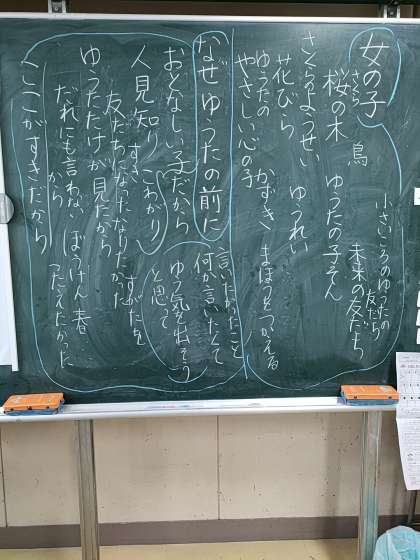 女の子
小さいころのゆうたの
友だち
桜の木　鳥　ゆうたの子そん　未来の友だち
さくら
さくらようせい　ゆうれい
花びら　かずき　まほうをつかえる
ゆうたの
やさしい心の子
なぜゆうたの前に
言いたかったこと
何か言いたくて
おとなしい子だから
ゆう気を出そう
と思って
人見知り　こわがり
すき
友だちになりたかった
すがたを
ゆうただけが見たから
だれにも言わない　ぼうけん者
から
ここがすきだから